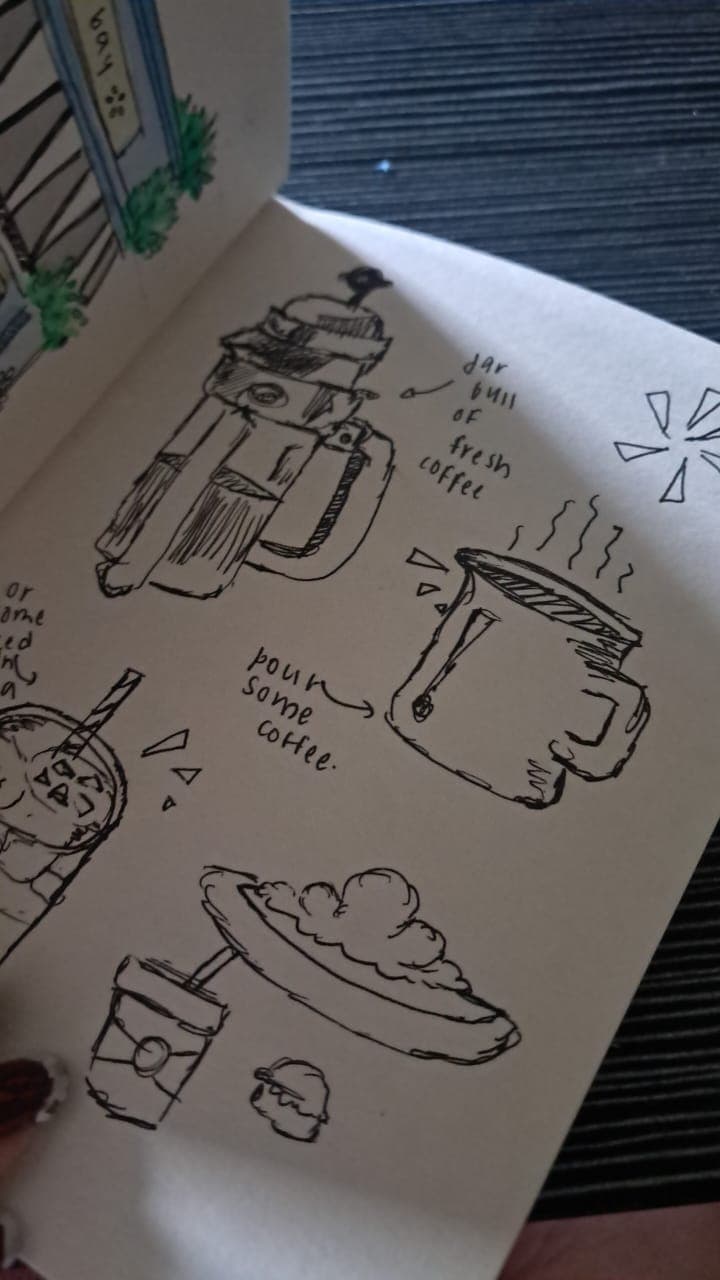 bay
jar
full
OF
fresh
coffee
pour
some
coffee.
or
ome
ed
a